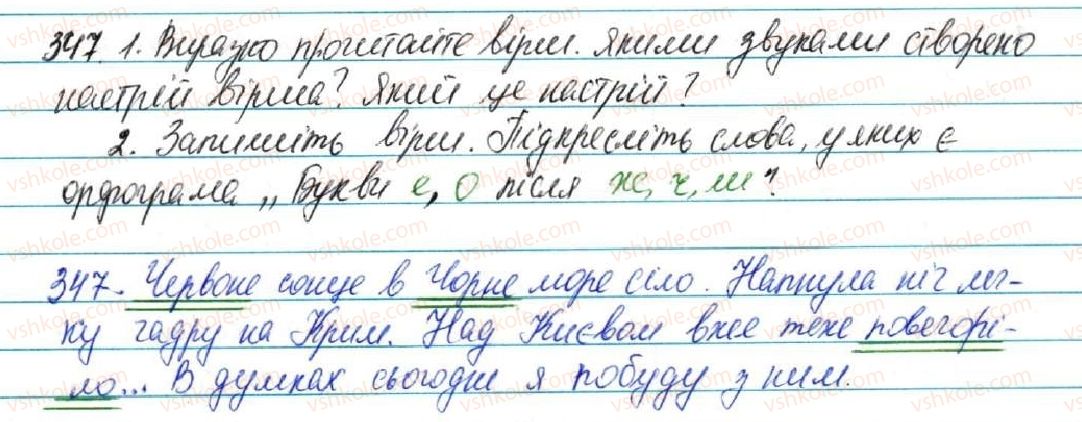 347. 1. Виразно прочитайте вірш. Якими звуками створено
настрій вірша? Який це настрій?
2. Запишіть вірш. Підкресліть слова, у яких є
орфограма „Букви е, о після ж, ч, ш"?
347. Червоне сонце в Чорне море сіло. Напнула ніч лег-
ку чадру на Крим. Над Києвом вже теж повечорі-
ло... В думках сьогодні я побуду з ним.